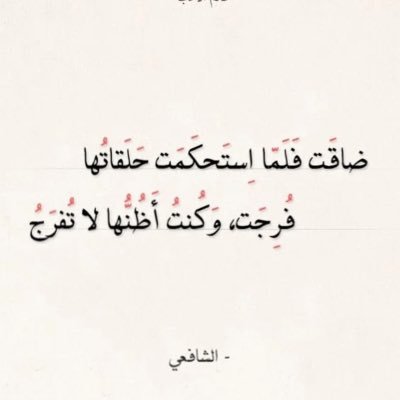 ضاقَت فَلَمّا اِستَحكَمَت حَلَقاتُها
فُرِجَت، وَكُنتُ أَظُنُّها لا تُفرَجُ
- الشافعي